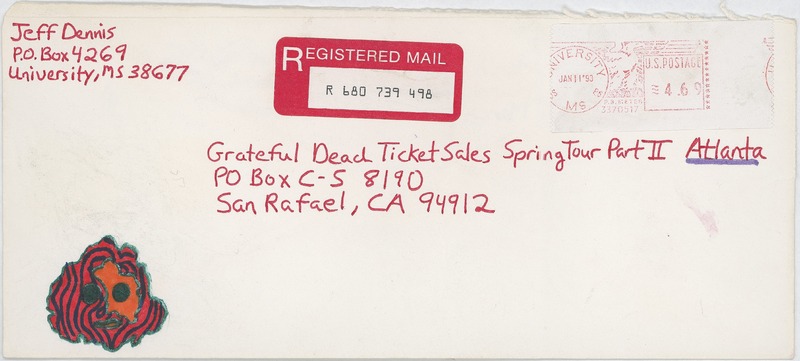 Jeff Dennis
P.O. Box 4269
University, MS 38677
REGISTERED MAIL
R 680 739 498
UNIVERSITY
JAN 11 '90
MS
U.S. POSTAGE
4.69
Grateful Dead Ticket Sales Spring Tour Part II Atlanta
PO Box C-S 8190
San Rafael, CA 94912